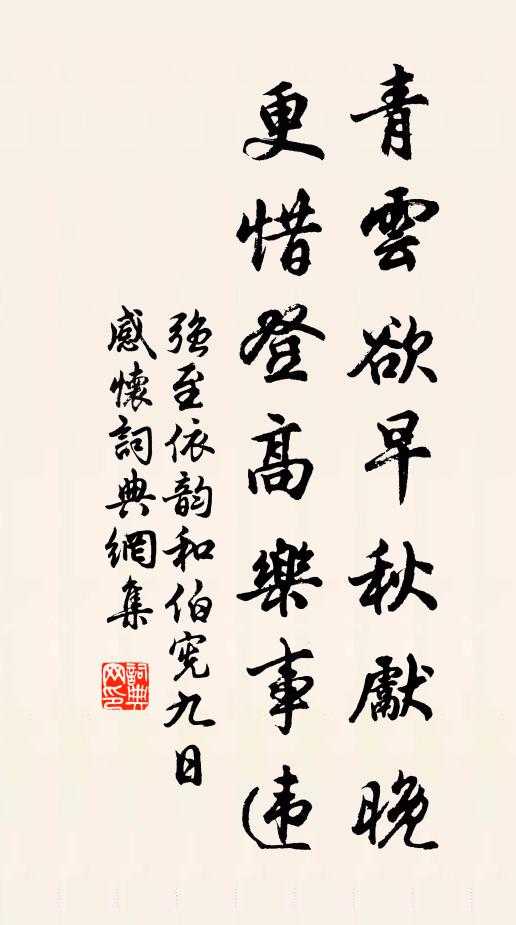 青雲欲早秋獻晚
更惜登高樂事违
强至依韵和伯宪九日
感懷詞典網集
詞典网印